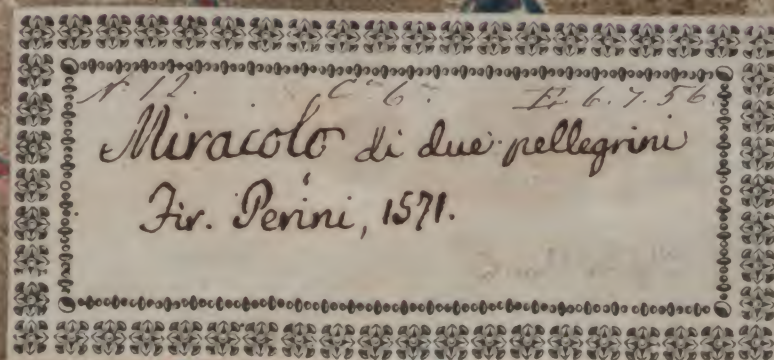 N. 12. C. 6. E. 6. 7. 56.
Miracolo di due pellegrini
Fir. Perini, 1571.